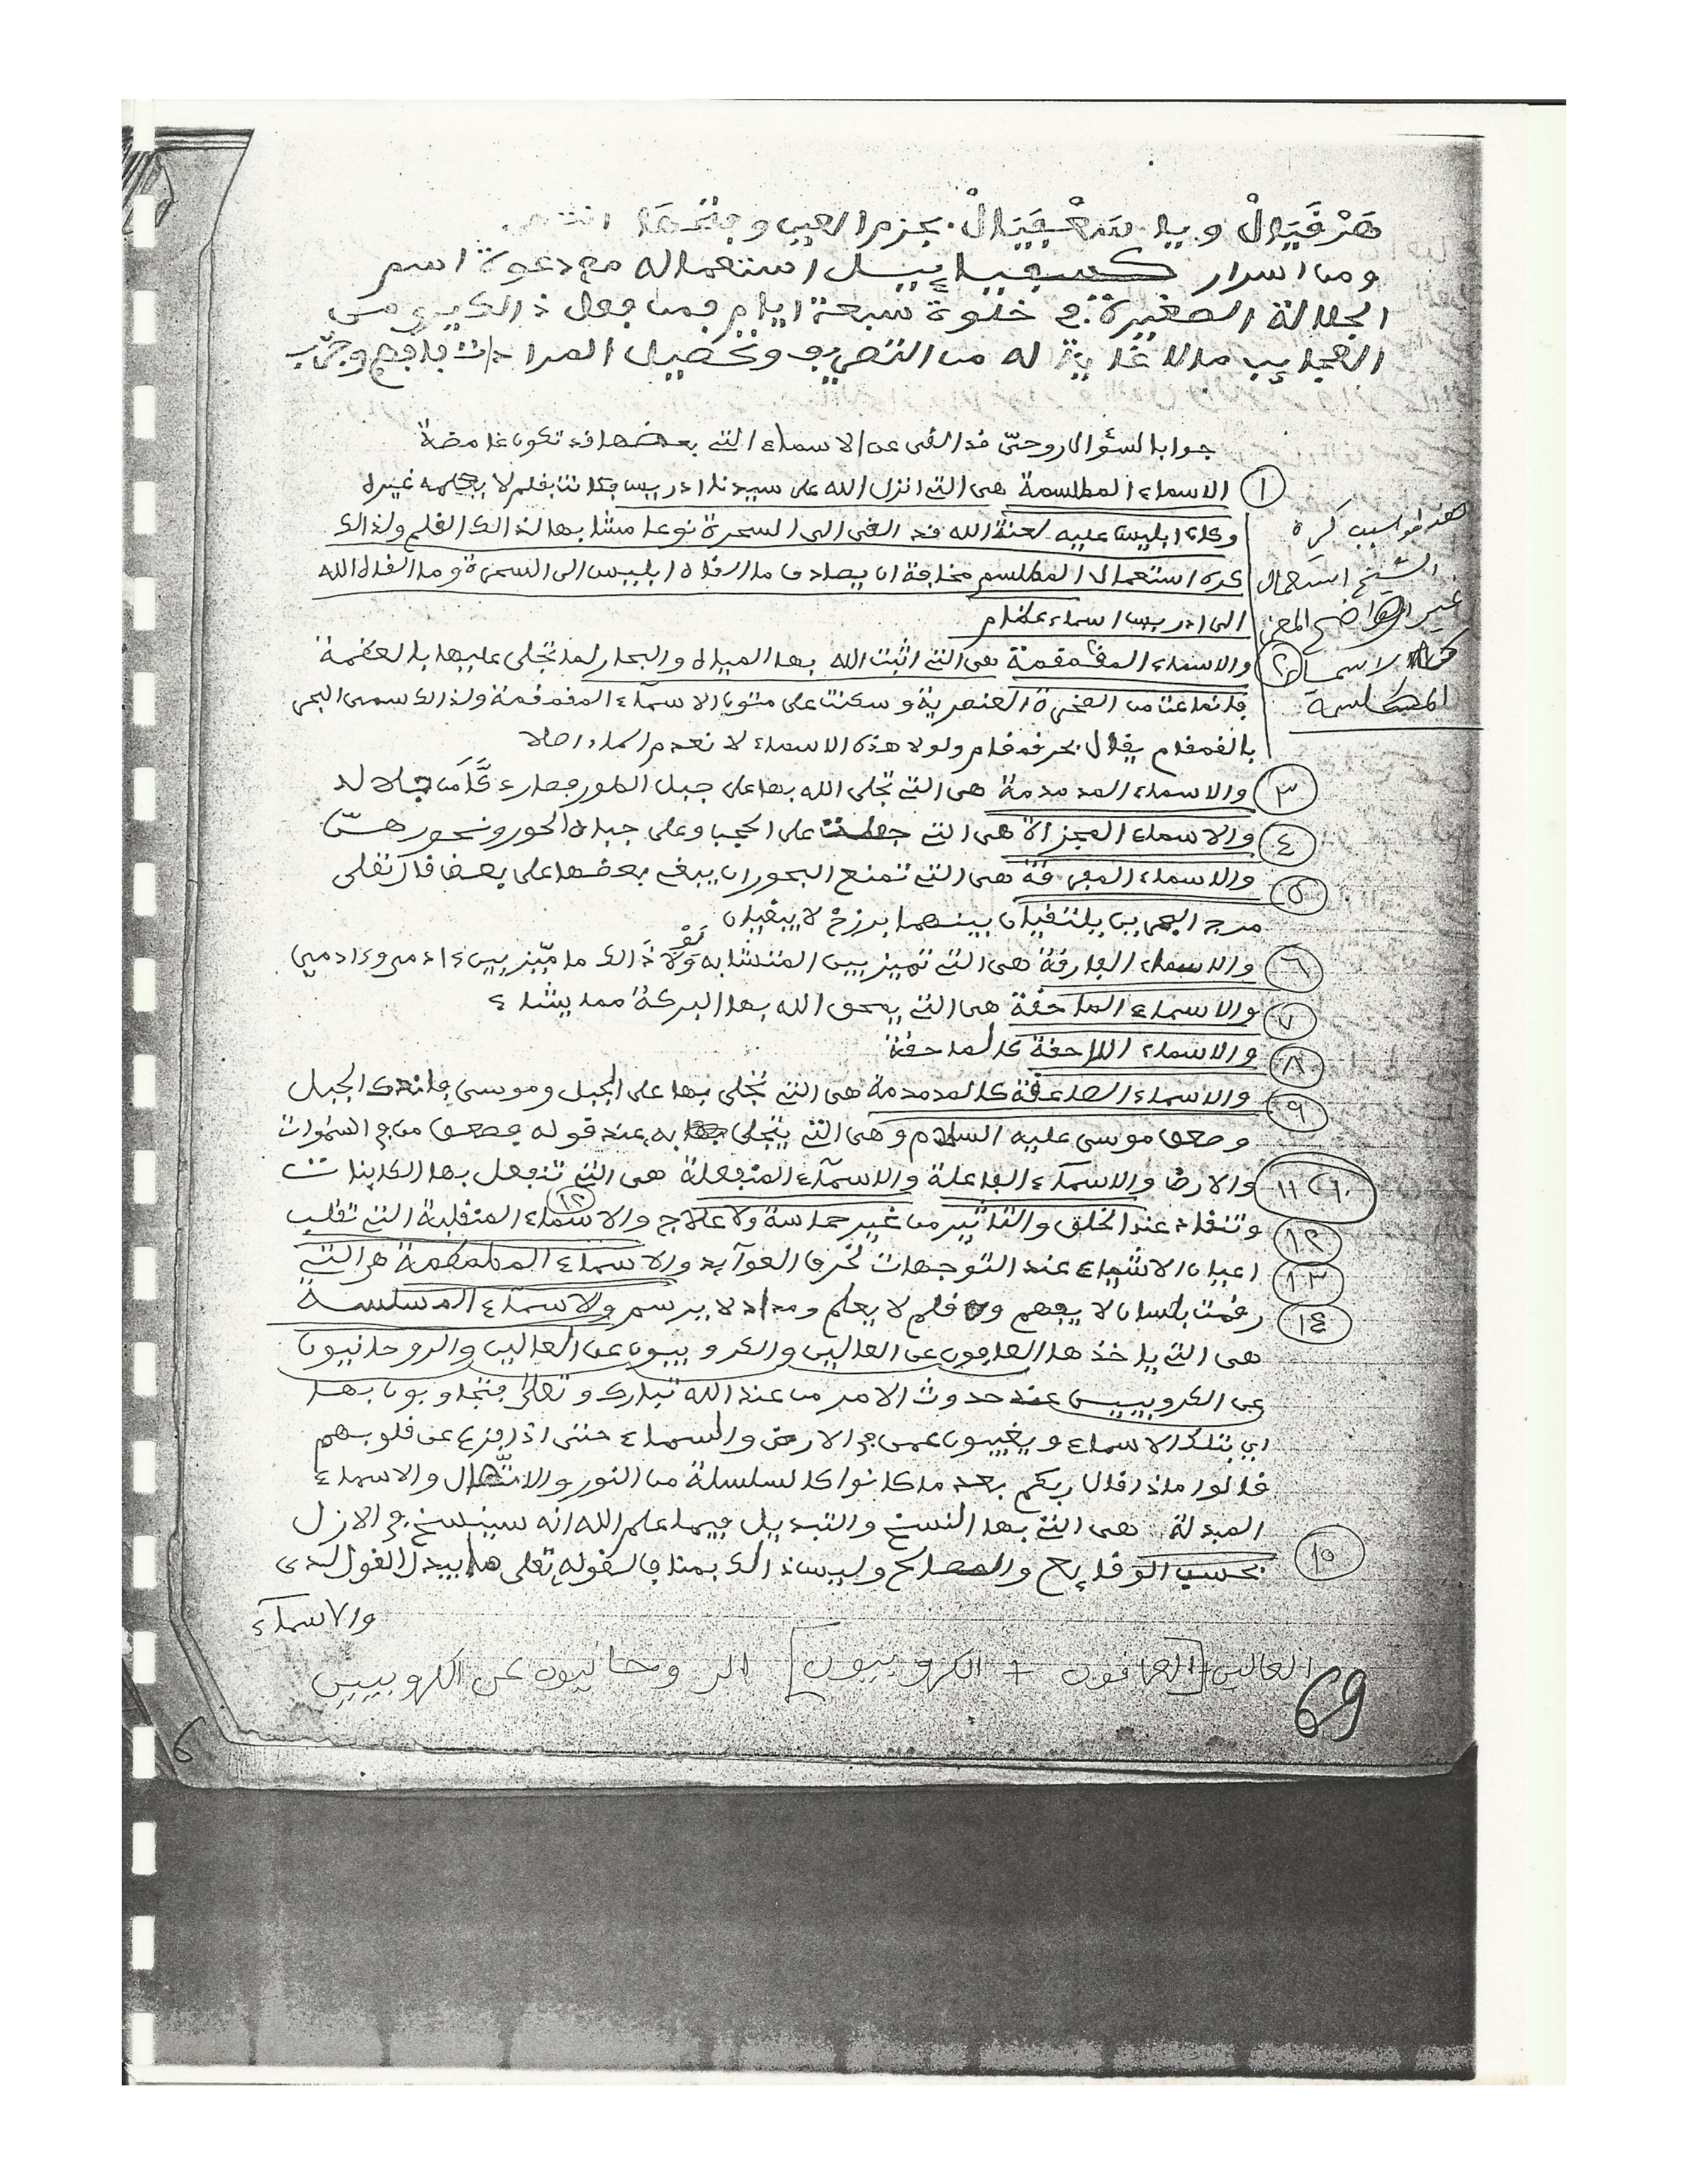 هَرْفَيَالْ ويا سَعْفَيَالْ بجزم العين وفتحها
ومن اسرار كسفياييل استعماله مع دعوة اسم
الجلالة الصغيرة في خلوة سبعة ايام فمن فعل ذالك يرى من
العجايب مالا غاية له من التصريف وتحصيل المرادات فافهم وجرّب
جوابا لسؤال روحيّ فد الفى عن الاسماء التي بعضها فد تكون غامضة
١ الاسماء المطلسمة هى التي انزل الله على سيدنا ادريس فكانت بفلم لا يعلمه غيره
وكان ابليس عليه لعنة الله فد الفى الى السحرة نوعا مشابها لذالك الفلم ولذالك
كره استعمال المطلسم مخافة ان يصادف ما الفاه ابليس الى السحرة وما الفاه الله
الى ادريس اسماء عظام
هذا هو سبب كره
الشيخ استعمال
غير الواضح المعنى
الاسماء
المطلسمة
٢ والاسماء المفمفمة هى التي اثبت الله بها المياه والبحار لما تجلى عليها بالعظمة
فانماعت من الصخرة العنصرية وسكنت على متون الاسماء المفمفمة ولذالك سمى البحر
بالفمفام يفال بحر فمفام ولولا هذه الاسماء لانعدم الماء اصلا
٣ والاسماء المدمدمة هى التي تجلى الله بها على جبل الطور فصار دكّا من جلاله
٤ والاسماء العجزالا هى التي جعلت على الحجب وعلى جباه الحور ونحورهنّ
٥ والاسماء المفرفة هى التي تمنع البحور ان يبغى بعضها على بعض فال تعلى
مرج البحرين يلتفيان بينهما برزخ لا يبغيان
٦ والاسماء الفارفة هى التي تميز بين المتشابه ولَوْلا ذالك ما ميّز بين ءادمى وءادمى
٧ والاسماء الماحفة هى التي يمحق الله بها البركة مما يشاء
٨ والاسماء اللاحفة كالماحفة
٩ والاسماء الصاعفة كالمدمدمة هى التي تجلى بها على الجبل وموسى فاندك الجبل
وصعق موسى عليه السلام وهى التي يتجلى به عند فوله فصعق من في السموات
١٠ ١١ والارض والاسماء الفاعلة والاسماء المنفعلة هى التي تنفعل بها الكاينات
١٢ وتنفاد عند الخلق والتاثير من غير مماسة ولا علاج والاسماء المنفلبة التي تفلب ١٢
١٣ اعيان الاشياء عند التوجهات لخرق العوآيد والاسماء المطمطمة هى التي
١٤ رفمت بلسان لا يفهم وفلم لا يعلم ومداد لا يرسم والاسماء المسلسلة
هى التي ياخذها الصافون عن العالين والكروبيون عن العالين والروحانيون
عن الكروبيين عند حدوث الامر من عند الله تبارك وتعلى فيتجاوبون بها
اي بتلك الاسماء ويغيبون عمن في الارض والسماء حتى اذا فزع عن فلوبهم
فالوا ماذا فال ربكم بعد ما كانوا كالسلسلة من النور والاتّصال والاسماء
المبدلة هى التي بها النسخ والتبديل فيما علم الله انه سينسخ في الازل
١٥ بحسب الوفايع والمصالح وليس ذالك بمناف لفوله تعلى ما يبدل الفول لدى
والاسماء
العالين [الصافون + الكروبيون] الروحانيون عن الكروبيين
69
6